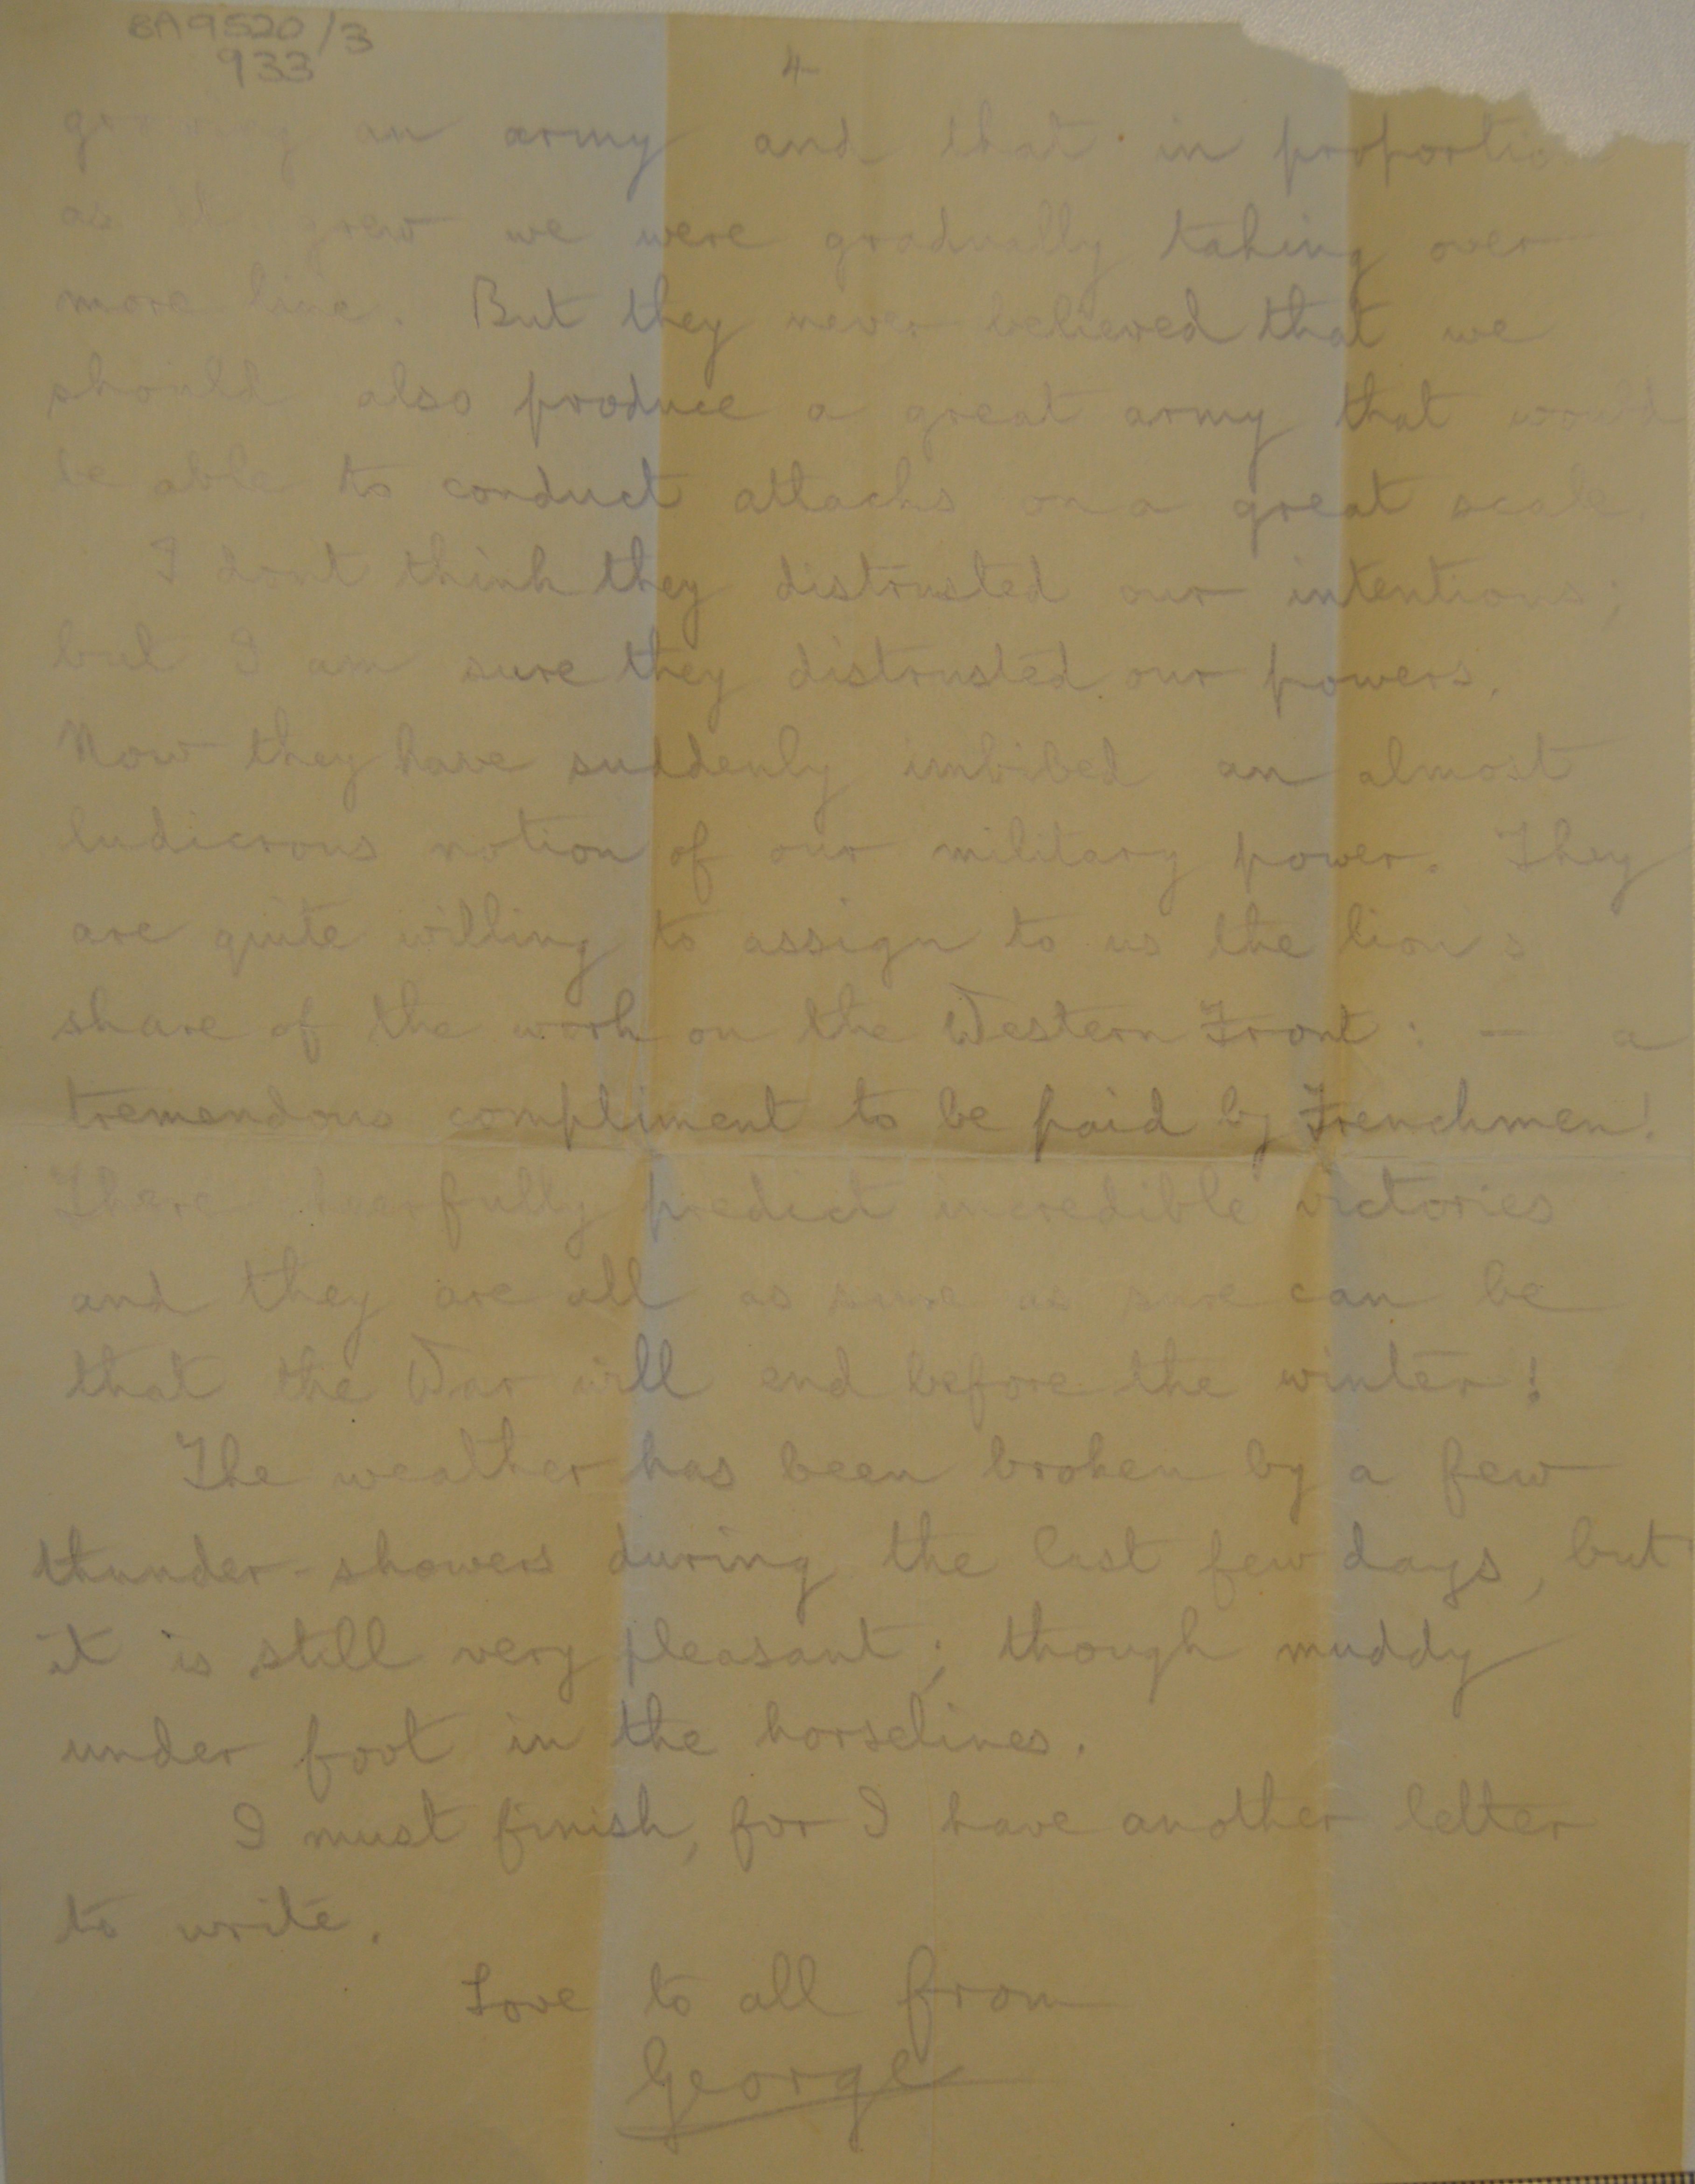 BA9520/3
933
4
growing an army and that in proportio
as it grew we were gradually taking over
more line. But they never believed that we
should also produce a great army that would
be able to conduct attacks on a great scale.
I dont think they distrusted our intentions;
but I am sure they distrusted our powers.
Now they have suddenly imbibed an almost
ludicrous notion of our military power. They
are quite willing to assign to us the lions
share of the work on the Western Front: — a
tremendous compliment to be paid by Frenchmen!
predict incredible victories
and they are all as sure as sure can be
that the War will end before the winter!
The weather has been broken by a few
thunder-showers during the last few days, but
it is still very pleasant; though muddy
under foot in the horselines.
I must finish, for I have another letter
to write.
Love to all from
George